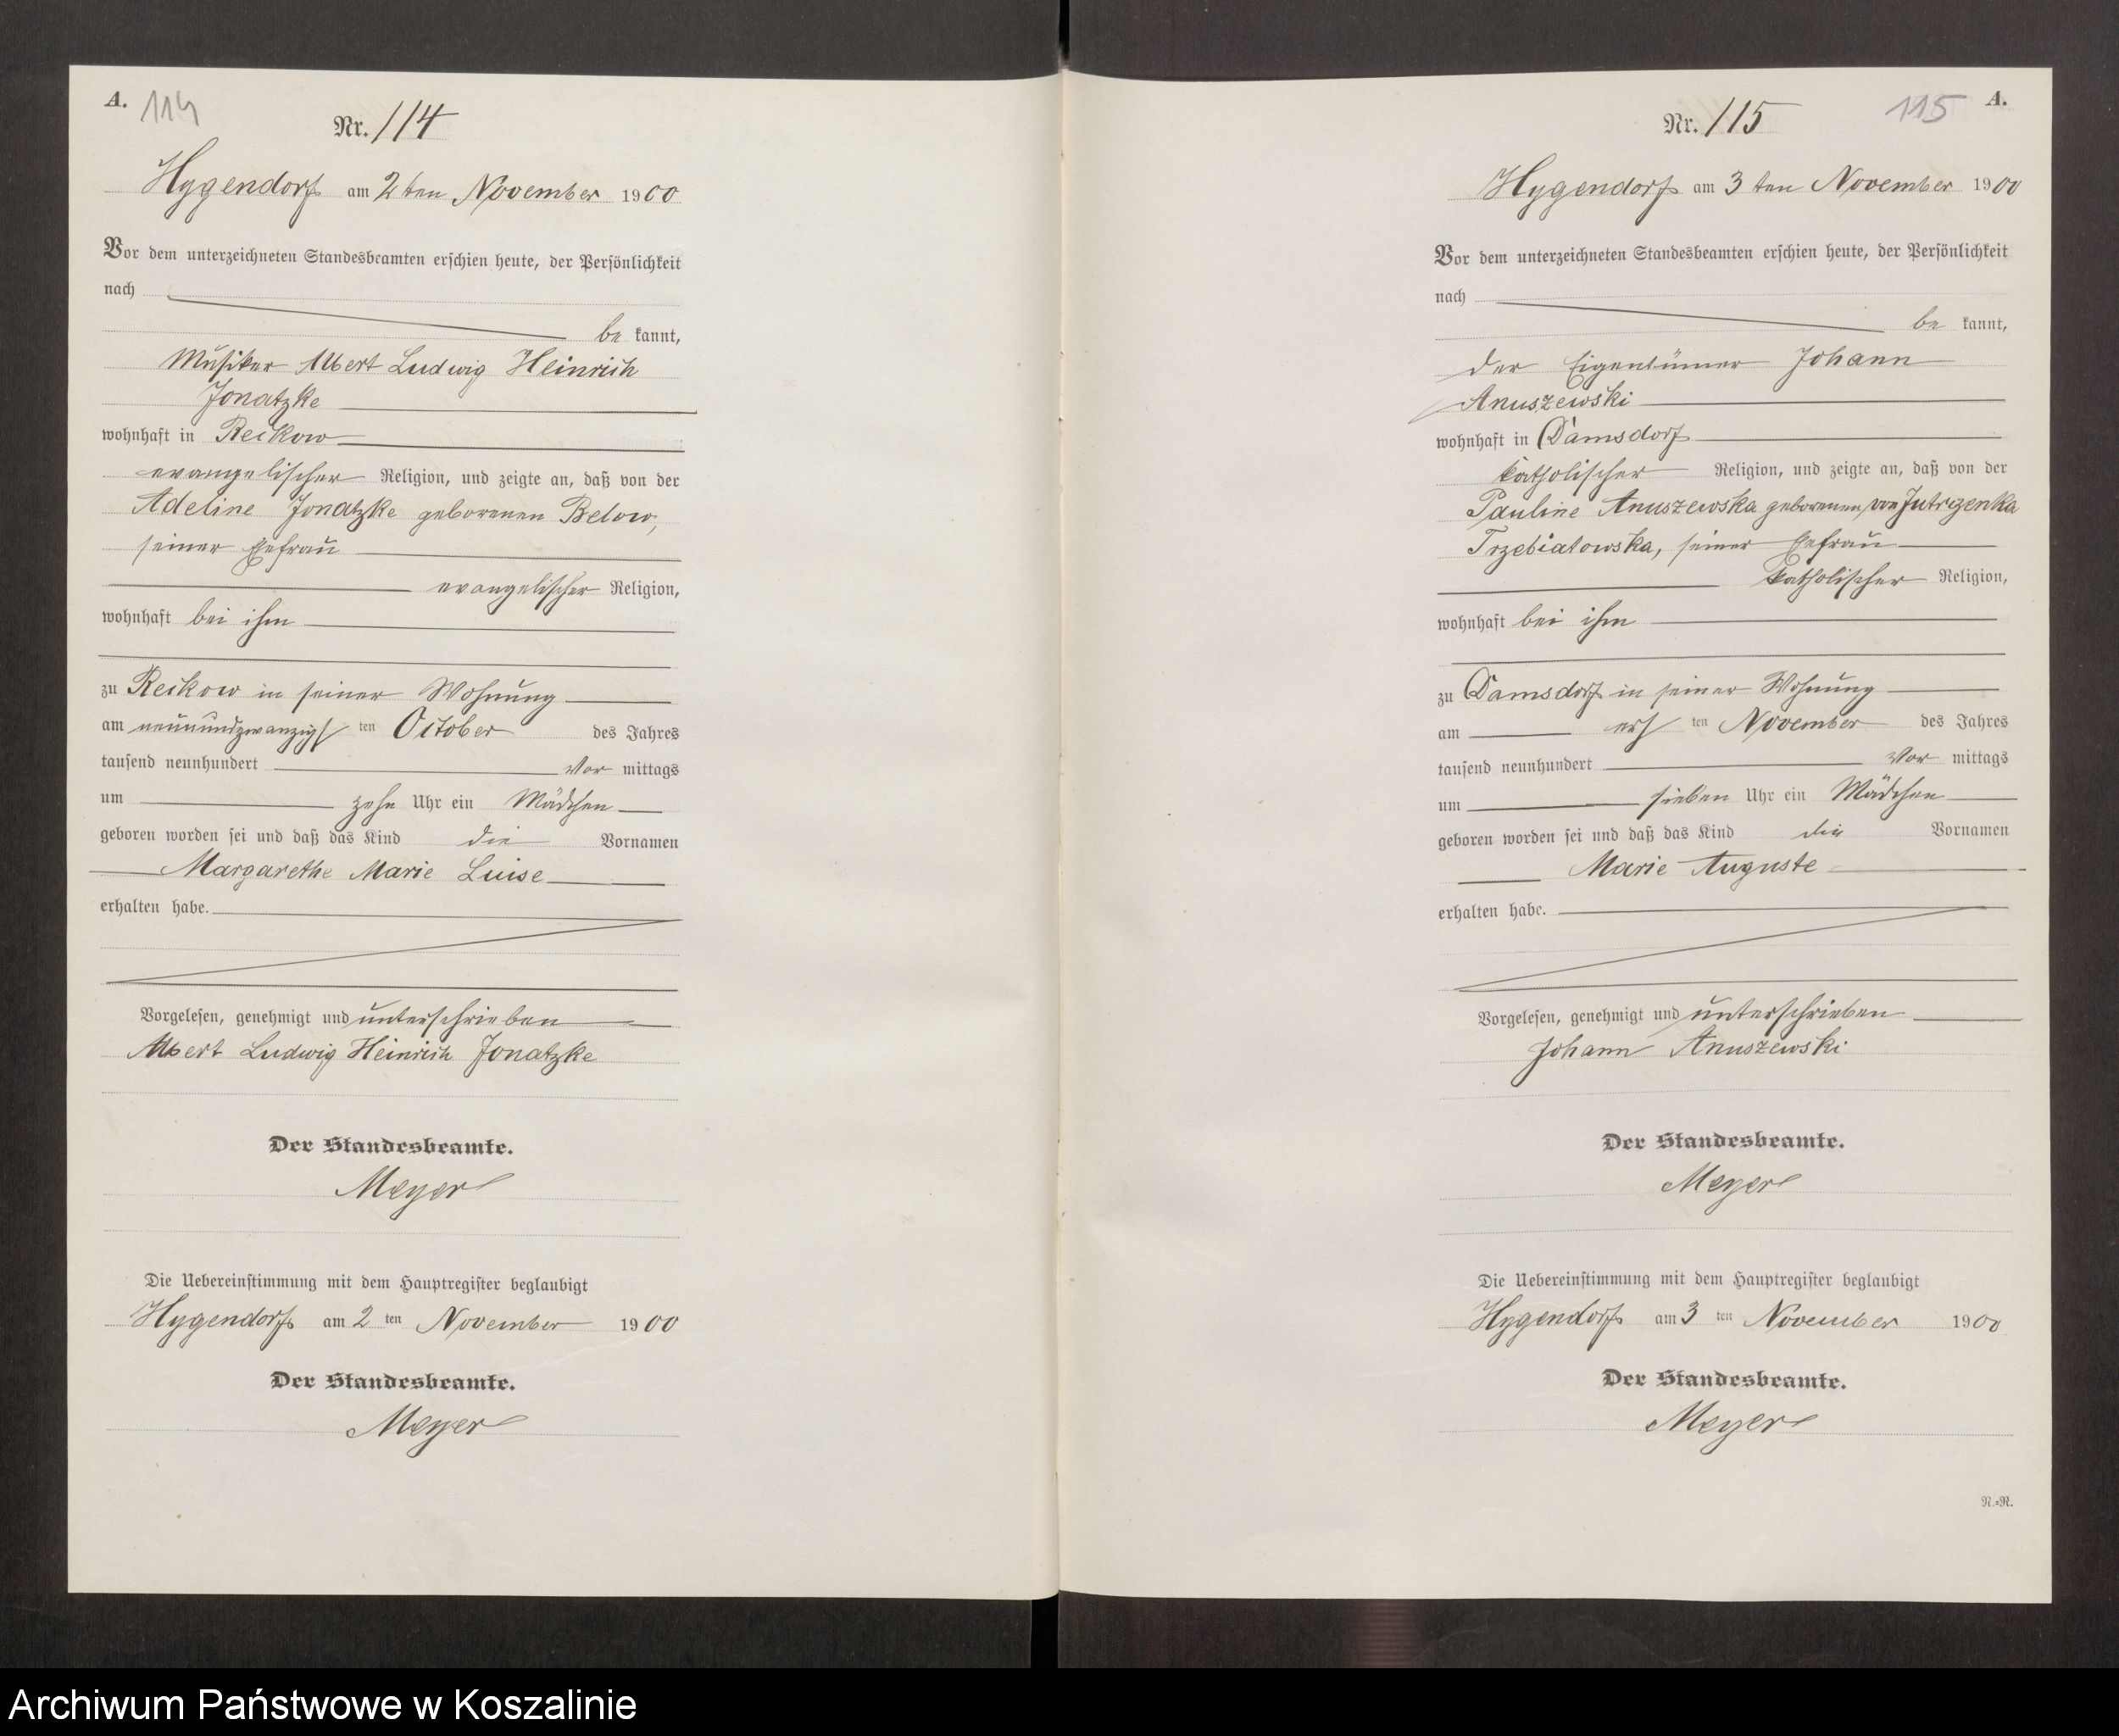 A. 114
Nr. 114
Hygendorf am 2ten November 1900
Vor dem unterzeichneten Standesbeamten erschien heute, der Persönlichkeit
nach
be kannt,
Musiker Albert Ludwig Heinrich
Jonatzke
wohnhaft in Reckow
evangelischer Religion, und zeigte an, daß von der
Adeline Jonatzke geborenen Below,
seiner Ehefrau
evangelischer Religion,
wohnhaft bei ihm
zu Reckow in seiner Wohnung
am neunundzwanzigsten October des Jahres
tausend neunhundert Vor mittags
um zehn Uhr ein Mädchen
geboren worden sei und daß das Kind die Vornamen
Margarethe Marie Luise
erhalten habe.
Vorgelesen, genehmigt und unterschrieben
Albert Ludwig Heinrich Jonatzke
Der Standesbeamte.
Meyer
Die Uebereinstimmung mit dem Hauptregister beglaubigt
Hygendorf am 2 ten November 1900
Der Standesbeamte.
Meyer
115 A.
Nr. 115
Hygendorf am 3 ten November 1900
Vor dem unterzeichneten Standesbeamten erschien heute, der Persönlichkeit
nach
be kannt,
der Eigentümer Johann
Anuszewski
wohnhaft in Damsdorf
katholischer Religion, und zeigte an, daß von der
Pauline Anuszewska geborenen von Jutrzenka
Trzebiatowska, seiner Ehefrau
katholischer Religion,
wohnhaft bei ihm
zu Damsdorf in seiner Wohnung
am ersten November des Jahres
tausend neunhundert Vor mittags
um sieben Uhr ein Mädchen
geboren worden sei und daß das Kind die Vornamen
Marie Auguste
erhalten habe.
Vorgelesen, genehmigt und unterschrieben
Johann Anuszewski
Der Standesbeamte.
Meyer
Die Uebereinstimmung mit dem Hauptregister beglaubigt
Hygendorf am 3 ten November 1900
Der Standesbeamte.
Meyer
N.=N.
Archiwum Państwowe w Koszalinie